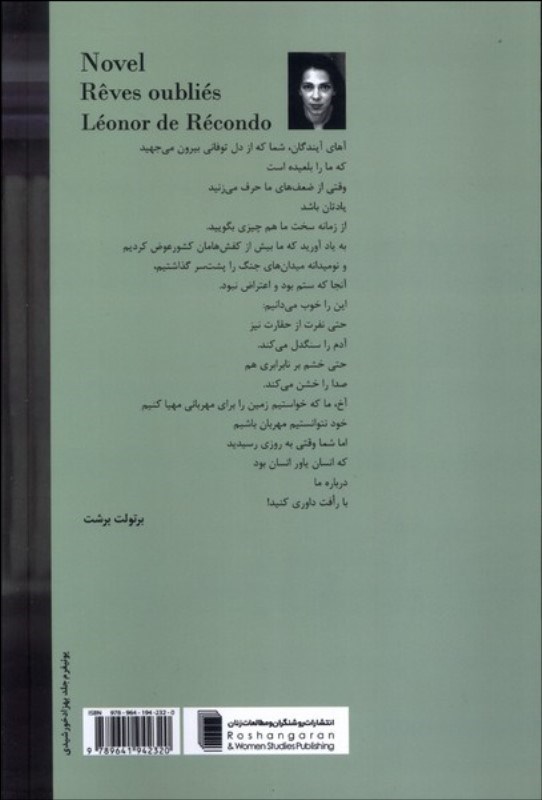 Novel
Rêves oubliés
Léonor de Récondo
آهای آیندگان، شما که از دل توفانی بیرون می‌جهید
که ما را بلعیده است
وقتی از ضعف‌های ما حرف می‌زنید
یادتان باشد
از زمانه سخت ما هم چیزی بگویید.
به یاد آورید که ما بیش از کفش‌هامان کشور عوض کردیم
و نومیدانه میدان‌های جنگ را پشت‌سر گذاشتیم،
آنجا که ستم بود و اعتراض نبود.
این را خوب می‌دانیم:
حتی نفرت از حقارت نیز
آدم را سنگدل می‌کند.
حتی خشم بر نابرابری هم
صدا را خشن می‌کند.
آخ، ما که خواستیم زمین را برای مهربانی مهیا کنیم
خود نتوانستیم مهربان باشیم
اما شما وقتی به روزی رسیدید
که انسان یاور انسان بود
درباره ما
با رأفت داوری کنید!
برتولت برشت
یونیفرم جلد بهزاد خورشیدی
ISBN 978-964-194-232-0
9 789641 942320
انتشارات روشنگران و مطالعات زنان
Roshangaran
& Women Studies Publishing